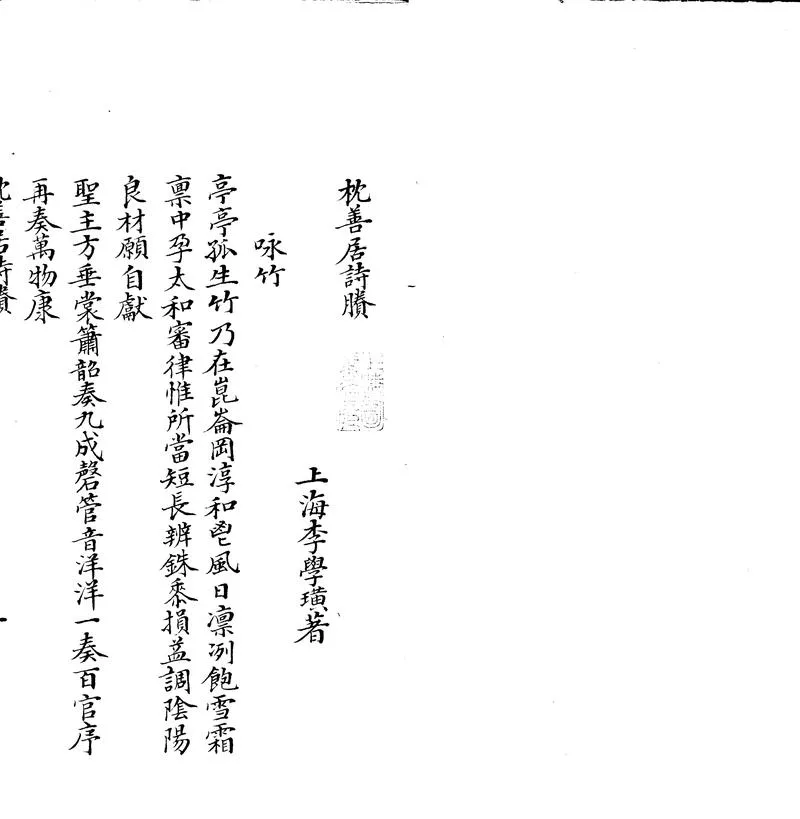 枕善居詩賸
上海李學璜著
咏竹
亭亭孤生竹乃在崑崙岡淳和鬯風日凛冽飽雪霜
禀中孕太和審律惟所當短長辨銖黍損益調陰陽
良材願自獻
聖主方垂裳簫韶奏九成磬管音洋洋一奏百官序
再奏萬物康
枕善居詩賸
一